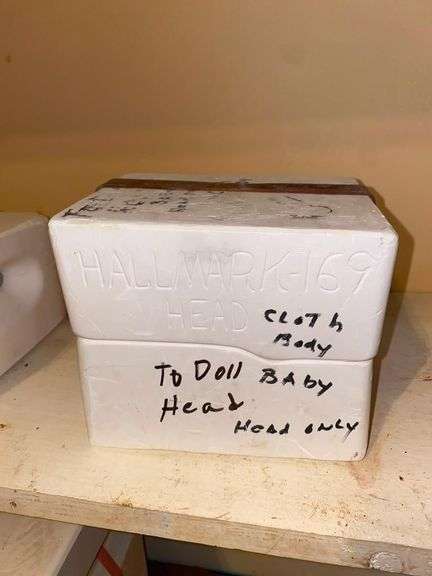 HALLMARK-169
HEAD
CLOTh
Body
To Doll BAby
Head
Head ONLY